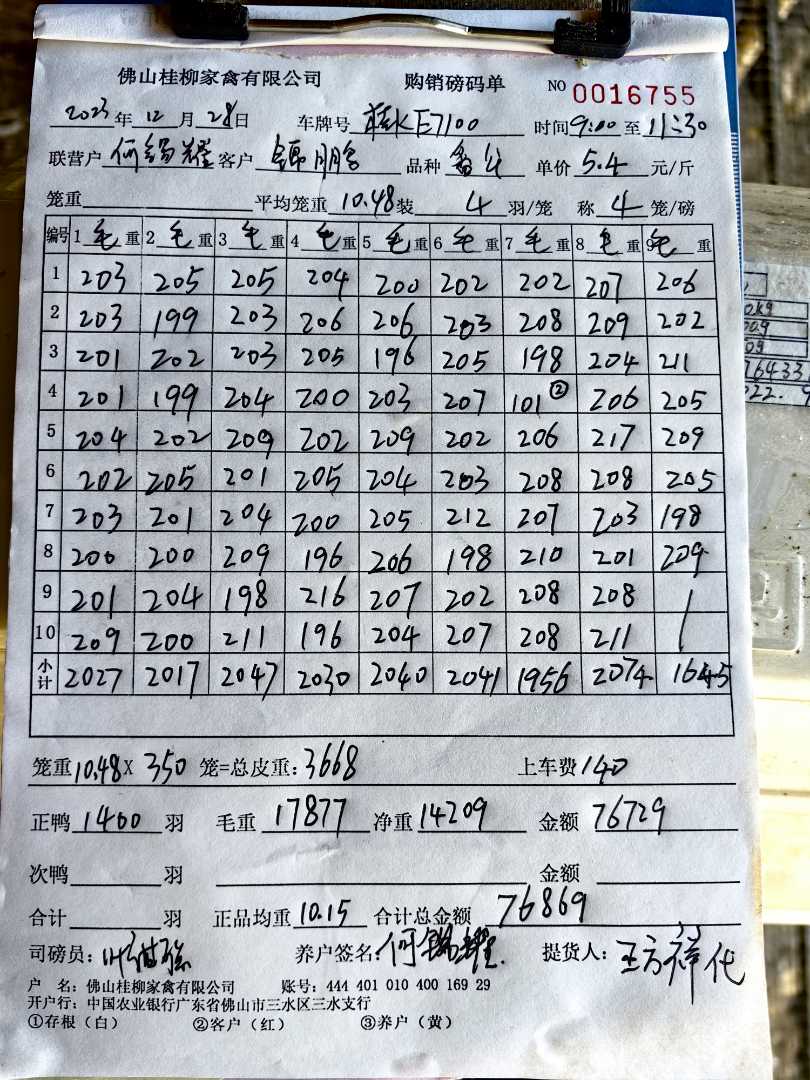 佛山桂柳家禽有限公司 购销磅码单 NO 0016755
2023年 12 月 28日 车牌号 E7100 时间9:00 至 11:30
联营户 何锦耀 客户 锦鹏 品种 单价 5.4 元/斤
笼重 平均笼重 10.48 装 4 羽/笼 称 4 笼/磅
编号 1 毛 重 2 毛 重 3 毛 重 4 毛 重 5 毛 重 6 毛 重 7 毛 重 8 毛 重 9 毛 重
1 203 205 205 204 200 202 202 207 206
2 203 199 203 206 206 203 208 209 202
3 201 202 203 205 196 205 198 204 211
4 201 199 204 200 203 207 101② 206 205
5 204 202 209 202 209 202 206 217 209
6 202 205 201 205 204 203 208 208 205
7 203 201 204 200 205 212 207 203 198
8 200 200 209 196 206 198 210 201 209
9 201 204 198 216 207 202 208 208
10 209 200 211 196 204 207 208 211
小计 2027 2017 2047 2030 2040 2041 1956 2074 1645
笼重 10.48 X 350 笼=总皮重: 3668 上车费 140
正鸭 1400 羽 毛重 17877 净重 14209 金额 76729
次鸭 羽 金额
合计 羽 正品均重 10.15 合计总金额 76869
司磅员: 养户签名: 何锦耀 提货人: 王方祥代
户 名: 佛山桂柳家禽有限公司 账号: 444 401 010 400 169 29
开户行: 中国农业银行广东省佛山市三水区三水支行
①存根（白） ②客户（红） ③养户（黄）